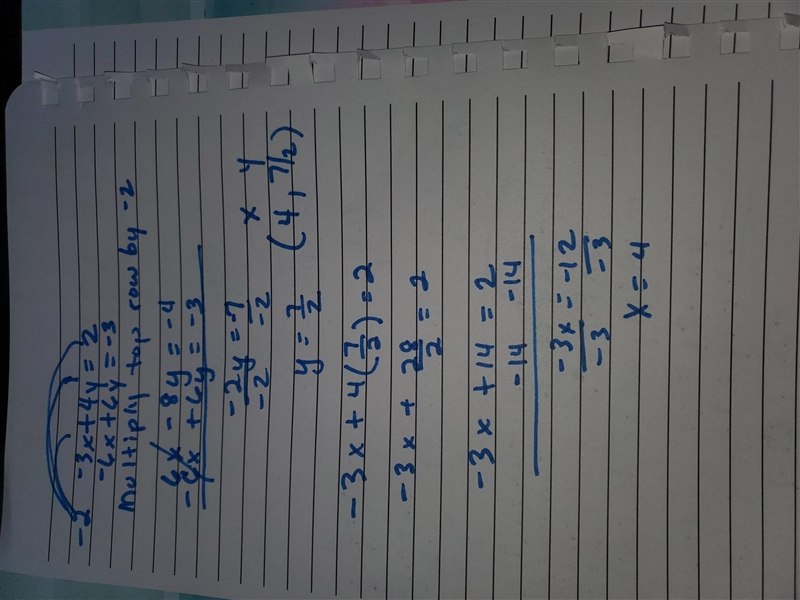 -2 -3x+4y = 2
-6x+6y = -3
Multiply top row by -2
6x - 8y = -4
-6x + 6y = -3
-2y = -7
-2 -2
x y
y = 7/2 (4, 7/2)
-3x + 4(7/2) = 2
-3x + 28/2 = 2
-3x + 14 = 2
-14 -14
-3x = -12
-3 -3
x = 4